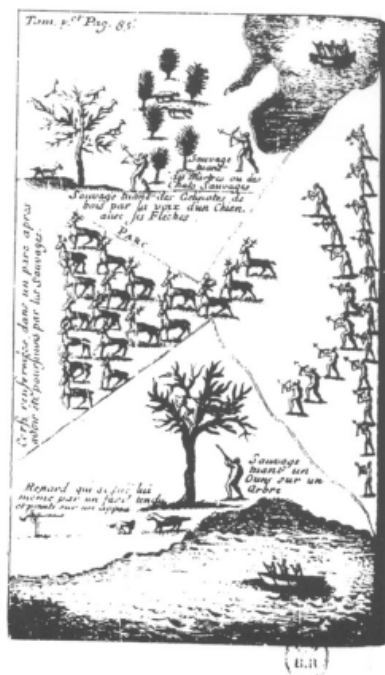 Tom. p.er Pag. 85.
Sauvage
tuant
des Martres ou des
Chats Sauvages
Sauvage tuant des Gelinotes de
bois par la voix d'un Chien,
avec ses Fleches
PARC
Cerfs renfermées dans un parc après
avoir été poursuivis par les Sauvages.
Sauvage
tuant un
Ours sur un
Arbre
Renard qui se tue lui
meme par un fusil tendu
et pointé sur un appas
B.R